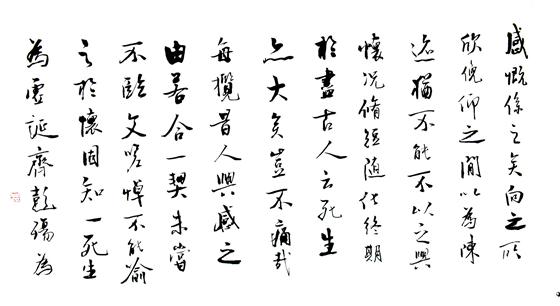 感慨係之矣向之所
欣俛仰之閒以為陳
迹猶不能不以之興
懷況脩短隨化終期
於盡古人云死生
亦大矣豈不痛哉
每攬昔人興感之
由若合一契未嘗
不臨文嗟悼不能喻
之於懷固知一死生
為虛誕齊彭殤為